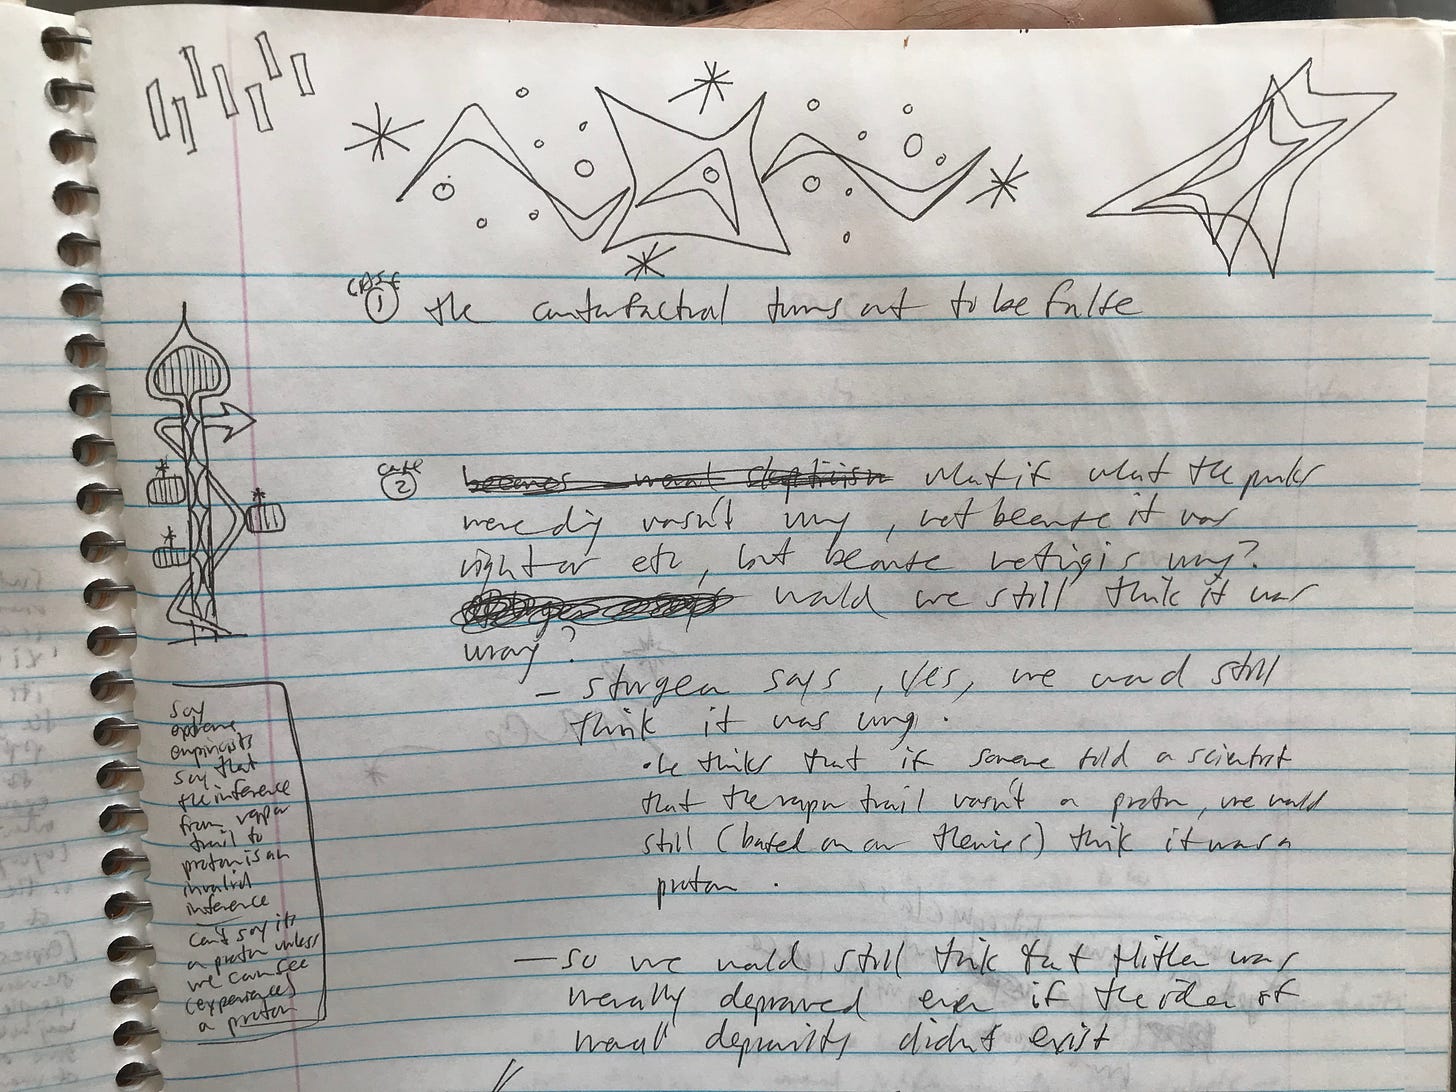 CASE
1 the counterfactual turns out to be false
case
2 becomes moral skepticism what if what the punks
were doing wasn't wrong, not because it was
right or etc, but because nothing is wrong?
would we still think it was
wrong?
– sturgeon says, yes, we would still
think it was wrong.
• he thinks that if someone told a scientist
that the vapor trail wasn't a proton, we would
still (based on our theories) think it was a
proton.
— so we would still think that Hitler was
morally depraved even if the idea of
moral depravity didn't exist
say
extreme
empiricists
say that
the inference
from vapor
trail to
proton is an
invalid
inference
can't say it's
a proton unless
we can see
(experience)
a proton